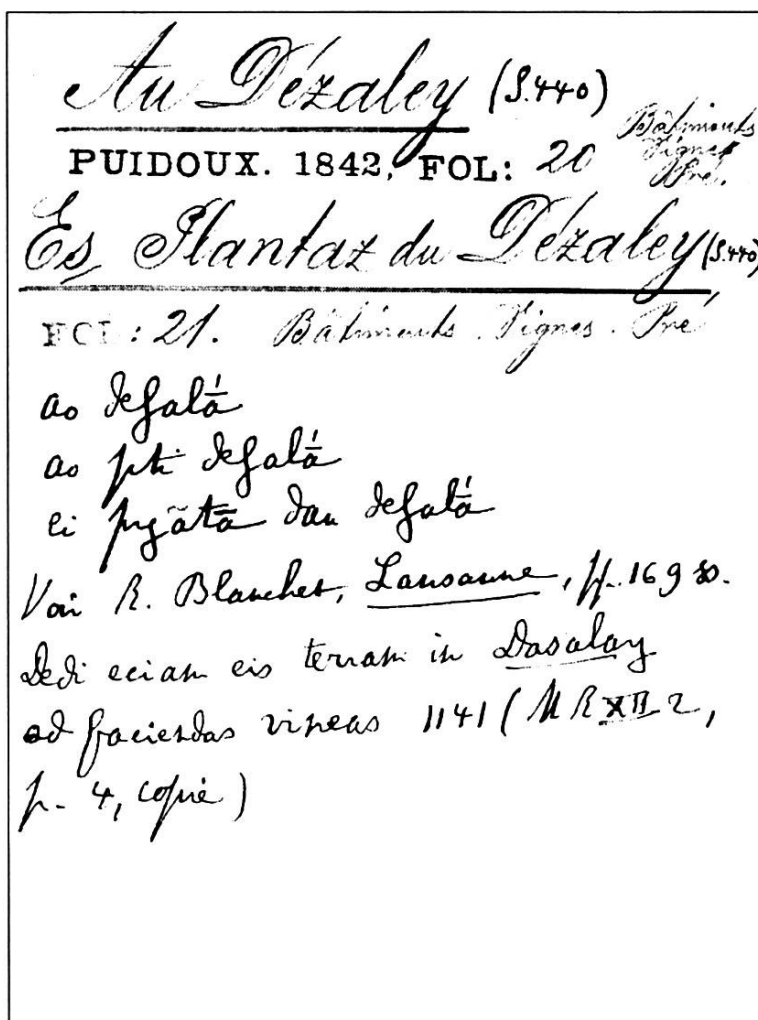 Au Dézaley (S.440)
PUIDOUX. 1842, FOL: 20 Bâtiments
Vignes
Pré.
Es Plantaz du Dézaley (S.440)
FOL: 21. Bâtiments. Vignes. Pré
ao
ao pti
ei dau
Voir R. Blanchet, Lausanne, pp. 169 ss.
Dedi eciam eis terram in Dasalay
ad faciendas vineas 1141 (MR XII 2,
p. 4, copie)